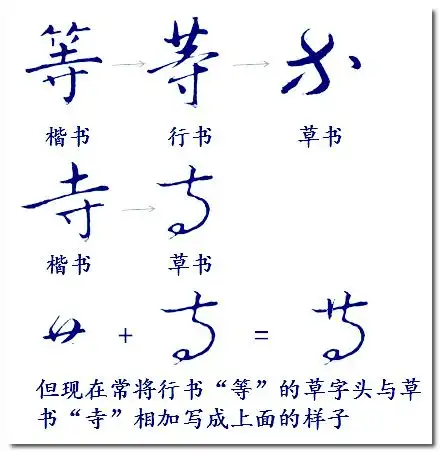 等 → 等 → 等
楷书 行书 草书
寺 → 寺
楷书 草书
艹 + 寺 = 等
但现在常将行书“等”的草字头与草
书“寺”相加写成上面的样子